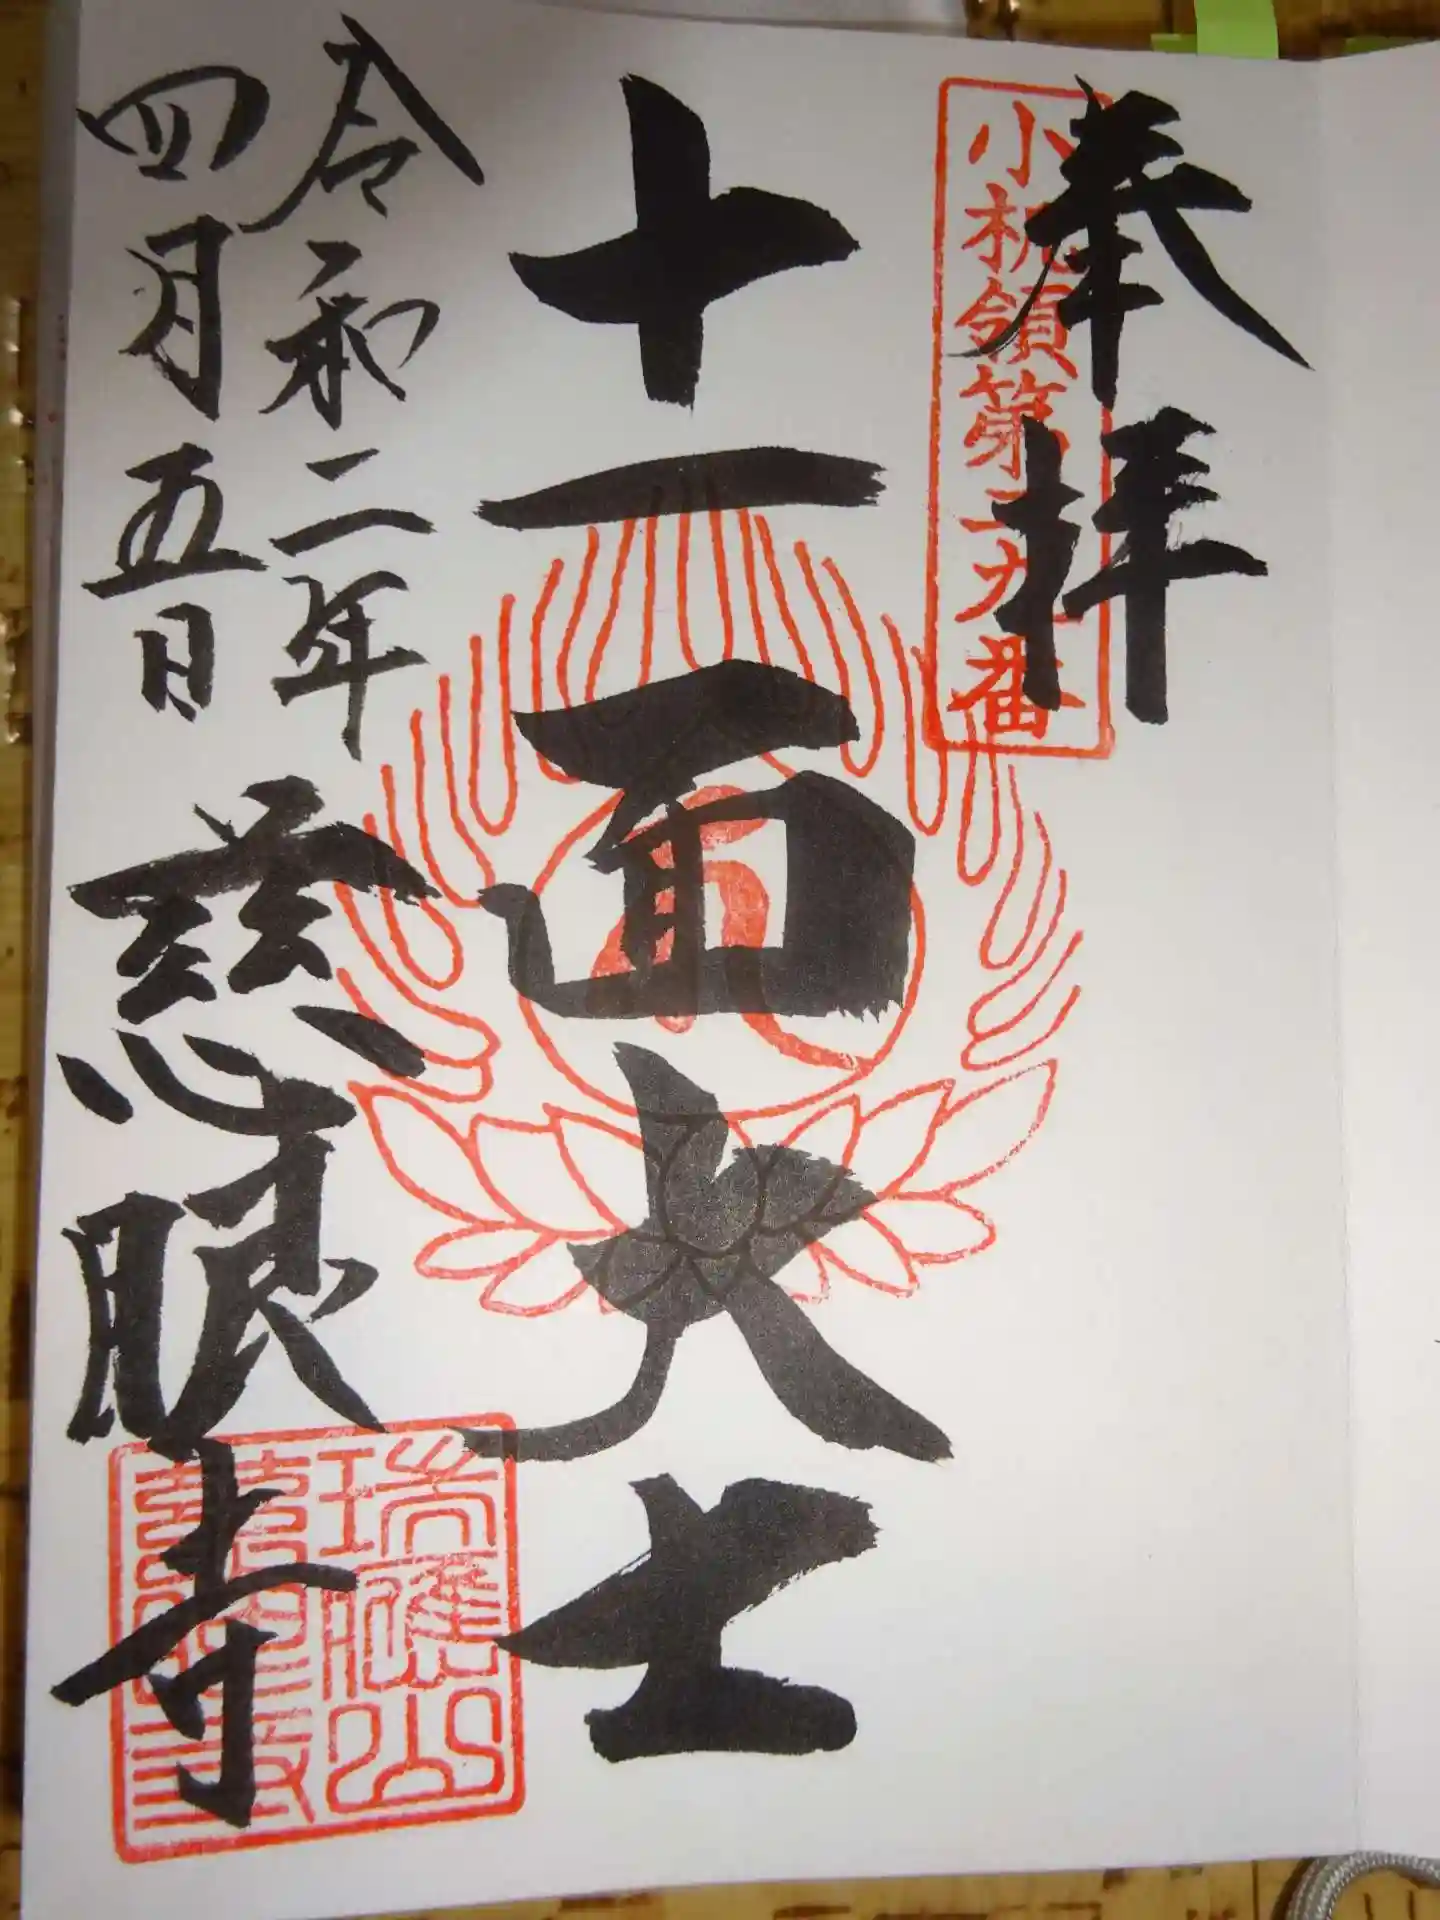 奉拝
小机領第二九番
十一面大士
令和二年
四月五日
慈眼寺
瑞應山
慈眼寺